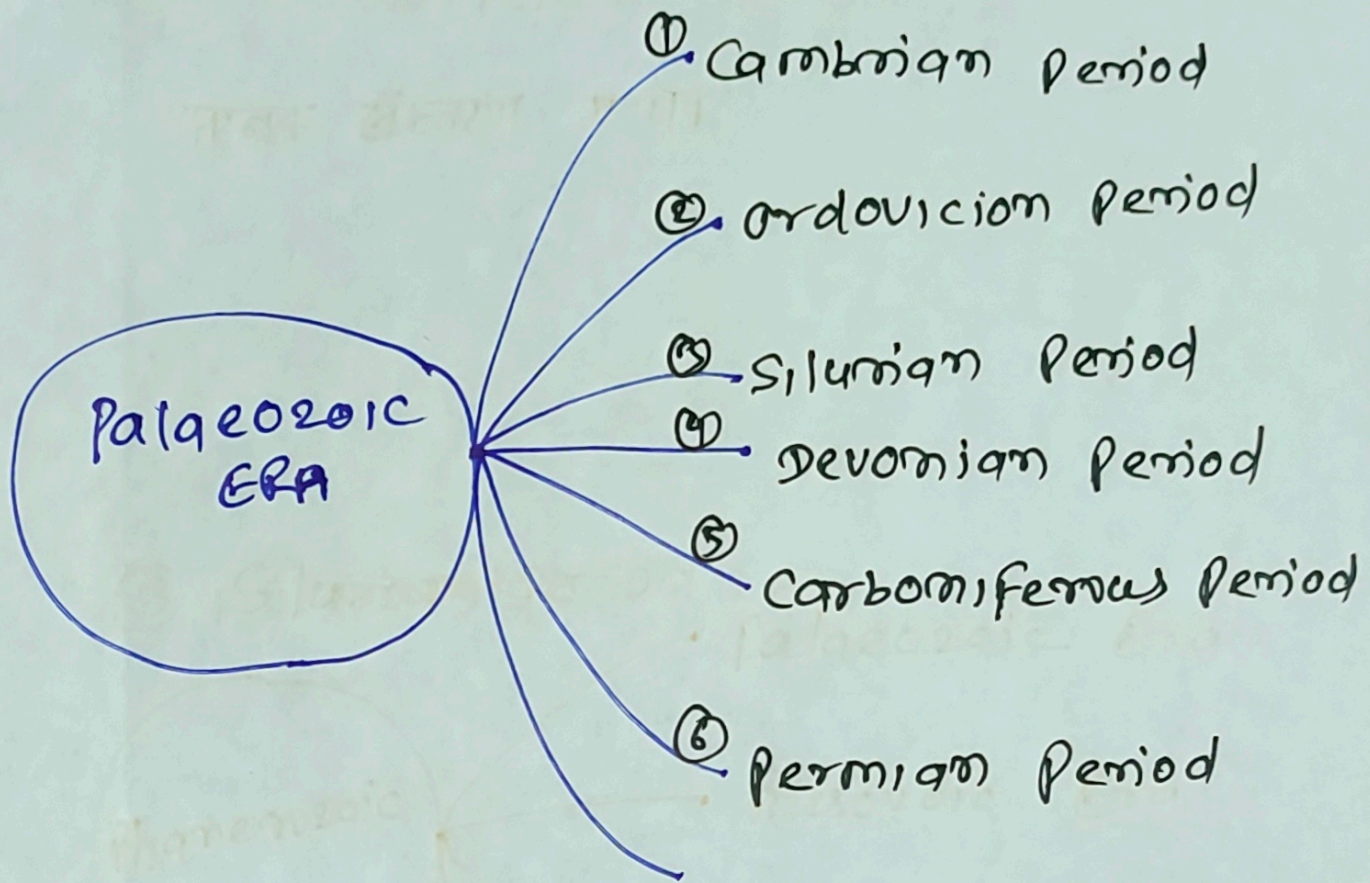 Palaeozoic
ERA
① Cambrian Period
② ordovicion Period
③ Silurian Period
④ Devonian Period
⑤ Carboniferous Period
⑥ Permian Period